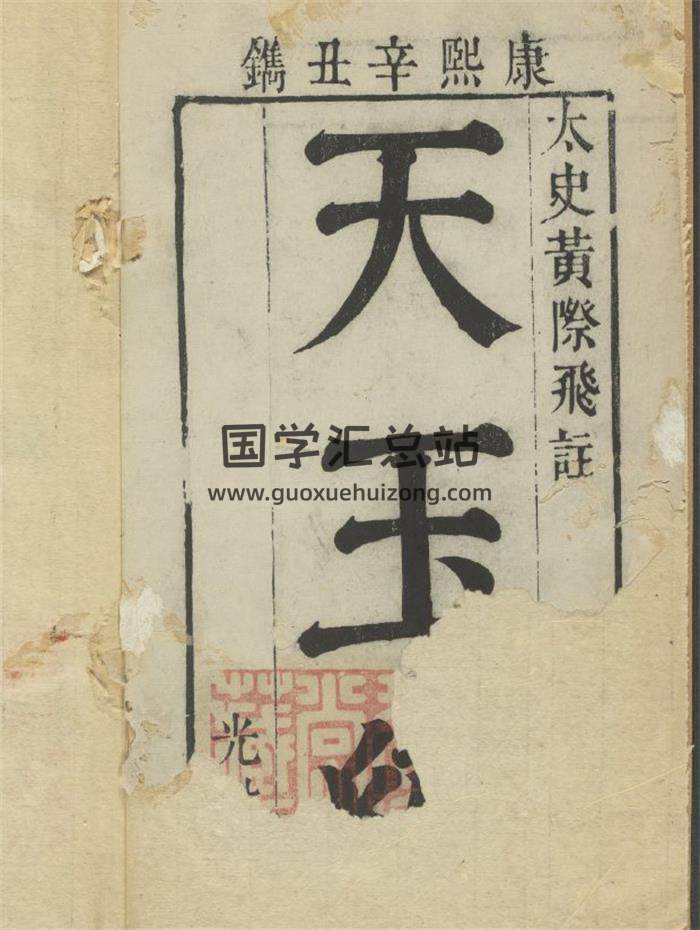 康熙辛丑鐫
太史黃際飛註
天玉
光
国学汇总站
www.guoxuehuizong.com